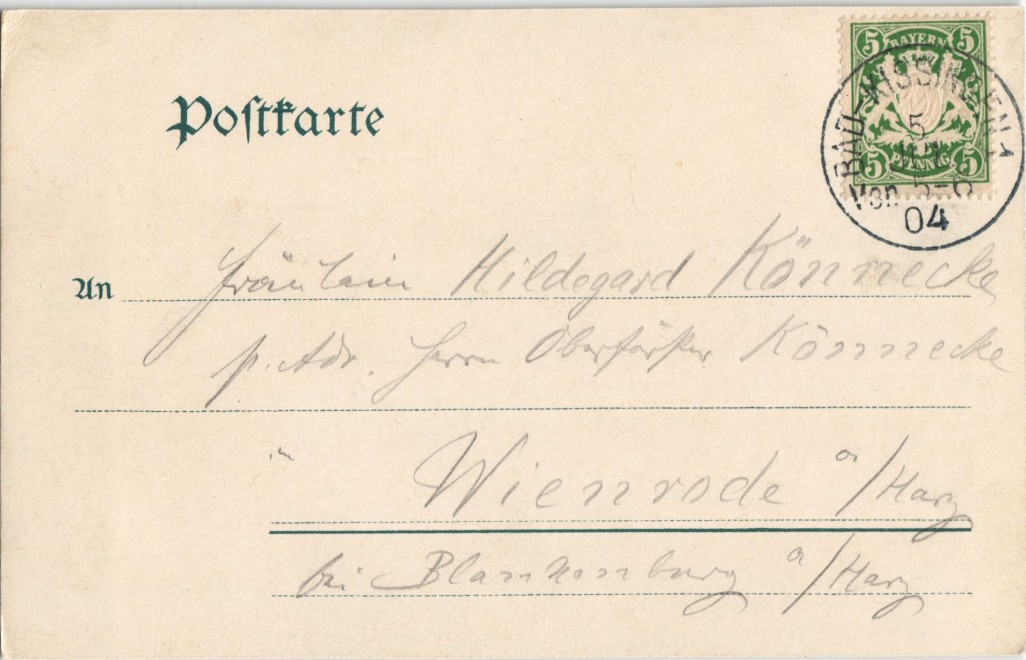 Postkarte
5 BAYERN 5
5 PFENNIG 5
BAD-KISSINGEN 1
5
Von 5-6
04
An Fräulein Hildegard Könnecke
p. Adr. Herrn Oberförster Könnecke
in Wienrode a/Harz
bei Blankenburg a/Harz